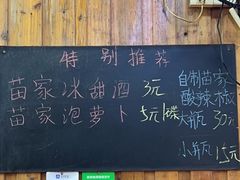 特别推荐
苗家冰甜酒 3元
苗家泡萝卜 5元1碟
自制苗家
酸辣椒
大瓶 30元
小瓶 15元